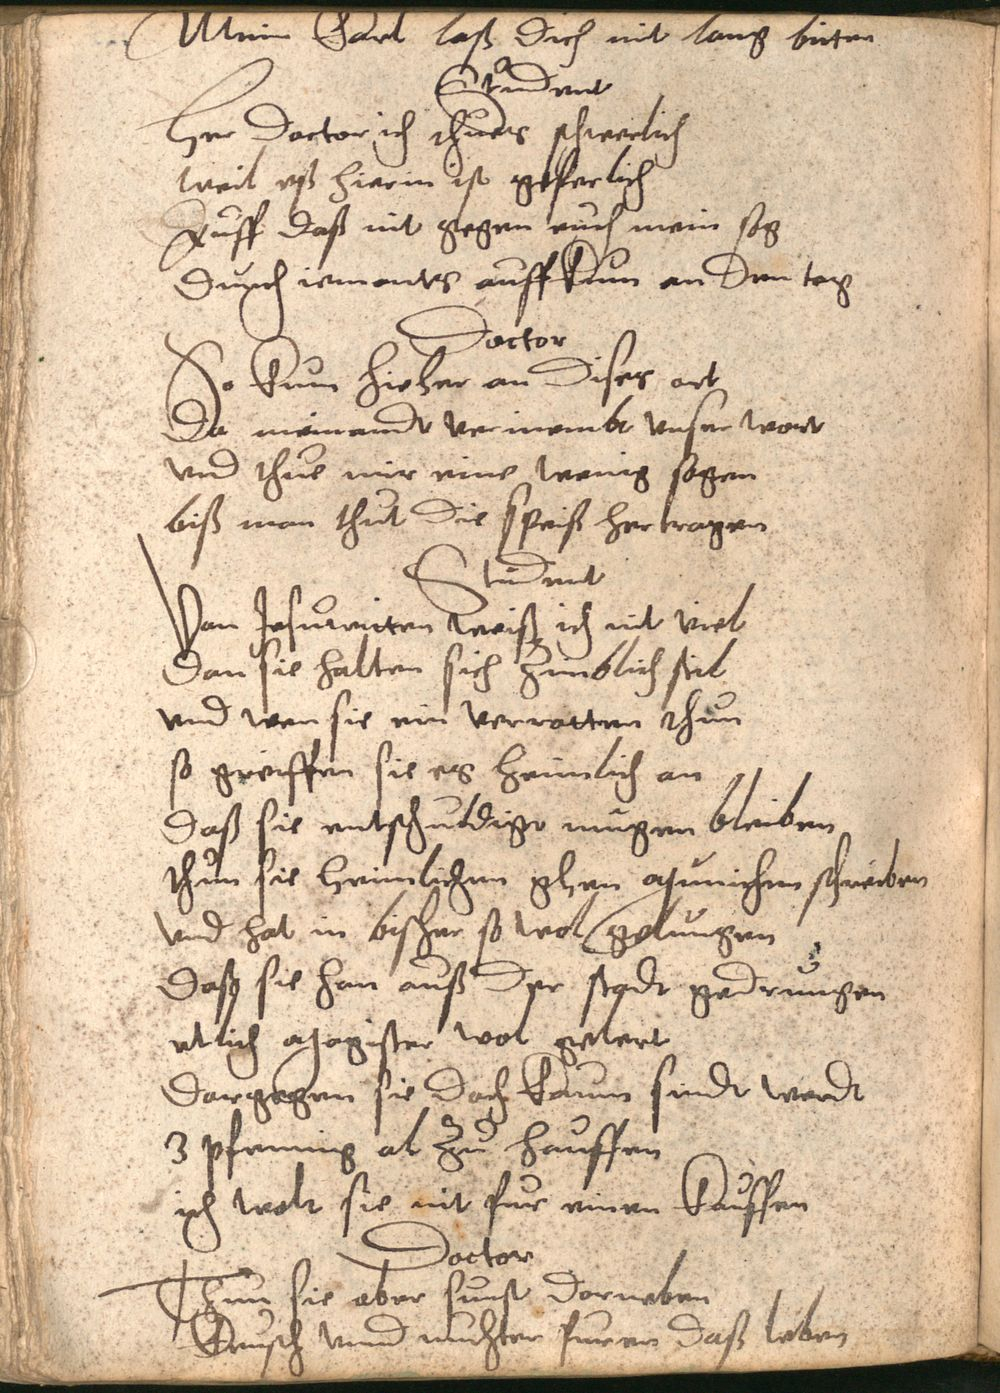 Mein Carl laß dich nit lang bieten
Student
Her Doctor ich thues schwerlich
weil eß hierin ist geferlich
Auff daß nit gegen euch mein sag
durch iemants auff kum an den tag
Doctor
So kum hieher an dises ort
Da niemandt vernimbt unser wort
und thue mir eine wenig sagen
biß man thut die speiß her tragen
Student
Von Jesuwitten weiß ich nit viel
dan sie halten sich zimblich stil
und wen sie ein verratten thun
so greiffen sie es heimlich an
daß sie entschuldigt mügen bleiben
thun sie heimlichen ghen München schreiben
und hat in bisher so wol gelungen
daß sie han auß der stadt gedrungen
etlich Magister wol gelert
dargegen sie doch kaum sindt werdt
3 pfenning al zu hauffen
ich wolt sie nit fur einen kauffen
Doctor
Thun sie aber sunst darneben
Keusch unnd nuchter furen daß leben